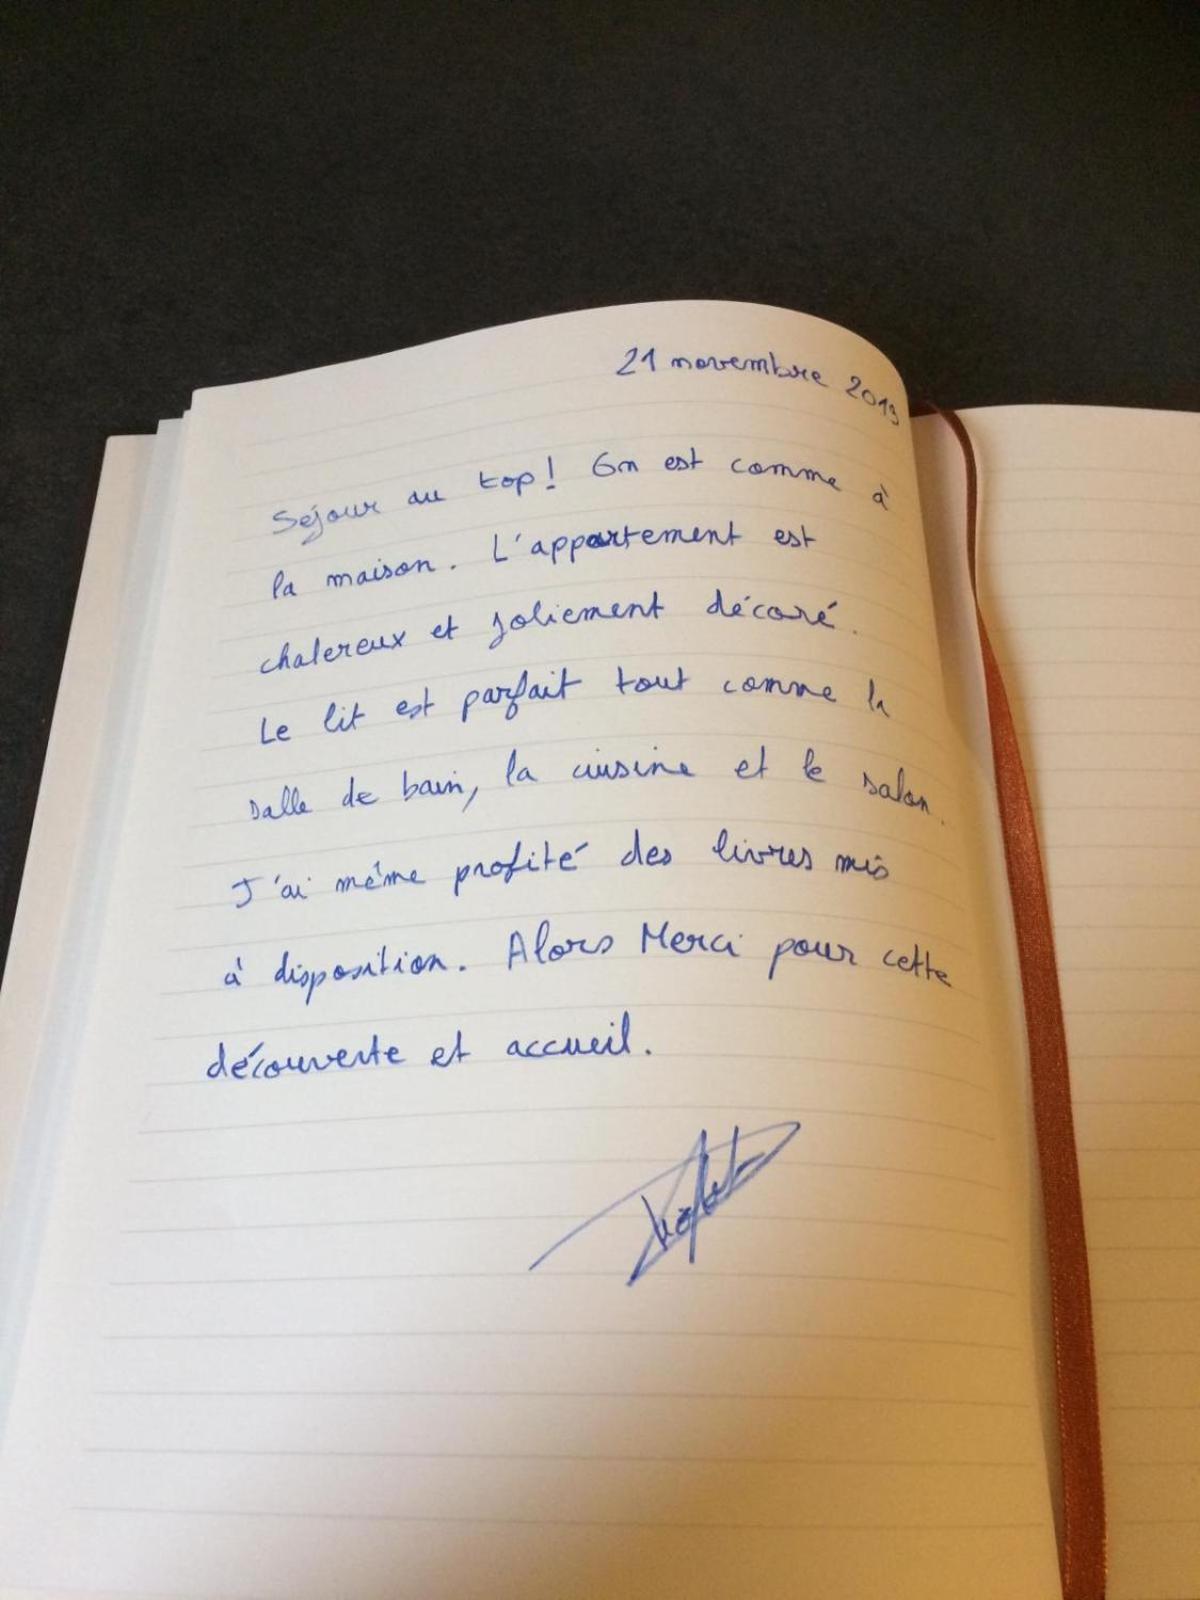 21 novembre 2019
Séjour au top! On est comme à
la maison. L'appartement est
chalereux et joliement décoré.
Le lit est parfait tout comme la
salle de bain, la cuisine et le salon.
J'ai même profité des livres mis
à disposition. Alors Merci pour cette
découverte et accueil.